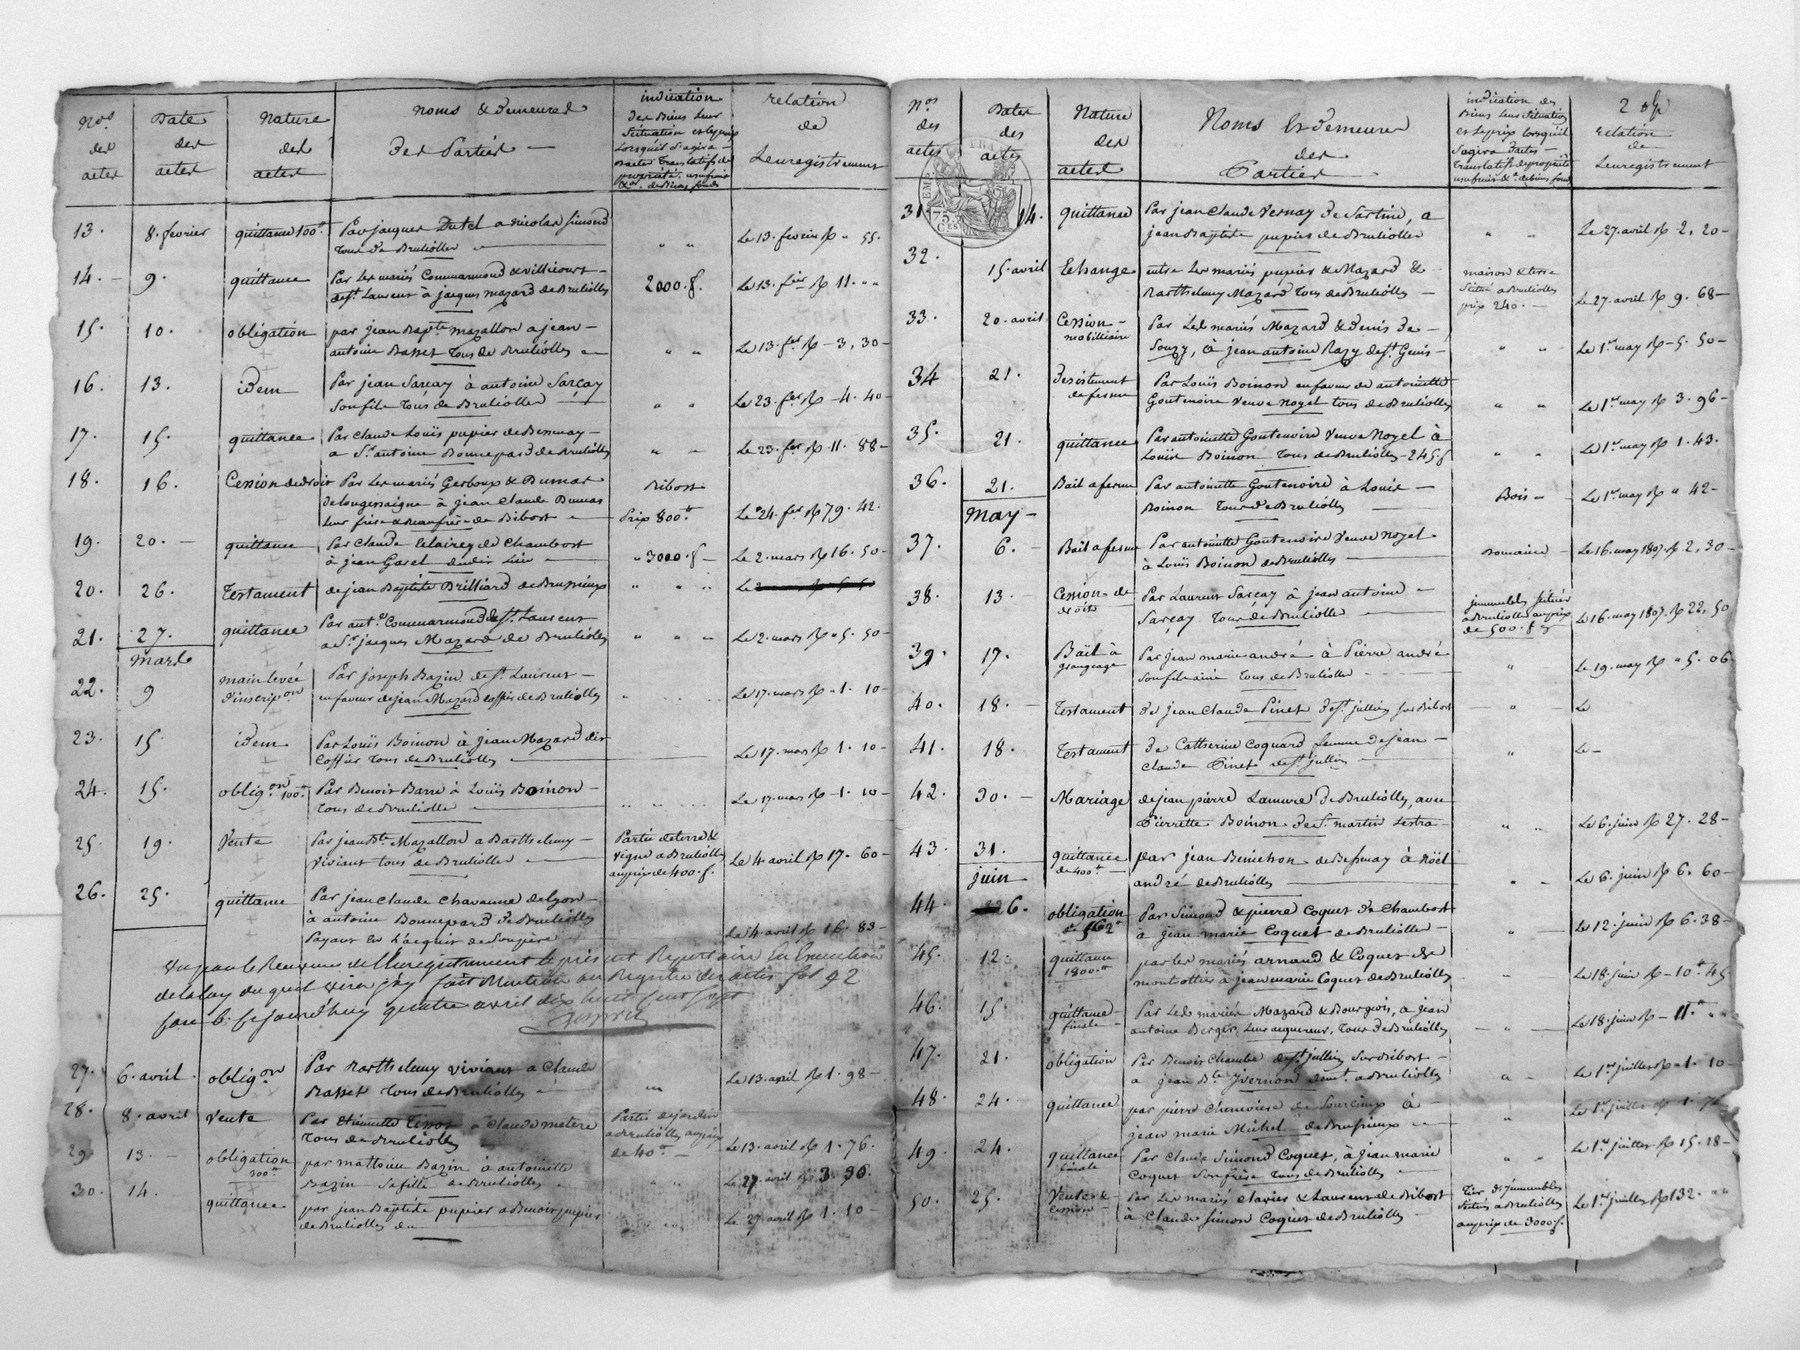 Nos des actes
Date des actes
Nature des actes
noms & demeures des Parties
indication des Biens leur Situation et le prix Lorsquil s'agira
relation de Lenregistrement
13. 8. fevrier quittance 100# Par jacques Dutel a nicolas simond
tous de Brullolles " " Le 13. fevrier R " 55.
14. 9. quittance Par les mariés Commarmond & villicourt
de St. Laurent à jacques mazard de Brullolles 2000. f. Le 13. fer R 11. " "
15. 10. obligation par jean Bapte mazallon a jean
antoine Basset tous de Brullolles " " Le 13. fer R 3, 30
16. 13. idem Par jean Sarcay à antoine Sarçay
son fils tous de Brullolles " " Le 23. fer R 4. 40
17. 15. quittance Par Claude Louis pupier de Bessenay
a Sr antoine Bonnepard de Brullolles " " Le 23. fer R 11. 88
18. 16. Cession de droit Par Les mariés Gerboux & Dumas
de longessaigne à jean Claude Dumas Ribost
leur frere & beaufrère de Ribost Prix 800# Le 24. fer R 79. 42.
19. 20. quittance Par Claude Eclairey de Chambost
à jean Garel dudit Lieu 3000. f Le 2. mars R 16. 50
20. 26. Testament de jean Baptiste Brilliard de Brussieux " " "
21. 27. quittance Par ant.e Commarmond de St. Laurent
a Sr. jacques Mazard de Brullolles " " Le 2. mars R 5. 50
Mars
22. 9 main levée d'inscripon Par joseph Bazin de St. Laurent
en faveur de jean Mazard coffier de Brullolles Le 17. mars R 1. 10
23. 15 idem Par Louis Boinon à jean Mazard dit
Coffier tous de Brullolles Le 17. mars R 1. 10
24. 15. obligon 100# Par Benoit Barre à Louis Boinon
tous de Brullolles Le 17. mars R 1. 10
25. 19. Vente Par jean Bte. Mazallon a Barthelemy
Viviant tous de Brullolles Partie de terre & vigne a Brullolles au prix de 400. f. Le 4. avril R 17. 60
26. 25. quittance Par jean Claude Chavanne de Lyon
à antoine Bonnepard de Brullolles
Payant en l'acquit de Le 4. avril R 16. 83
Vu par le Receveur de l'Enregistrement le présent Repertoire En Execution
de la Loy du quel visa j'ay fait Mention au Registre des actes fol 92
ce jourd'huy quatre avril dix huit cent sept
27. 6. avril obligon Par Barthelemy Viviant a Claude
Basset tous de Brullolles " Le 13. avril R 1. 98
28. 8. avril Vente Par Etiennette Tissot a Claude
tous de Brullolles Partie de jardin a Brullolles au prix de 40# Le 13. avril R 1. 76.
29. 13. obligation 300# par Bazin à antoinette
Bazin Sa fille de Brullolles Le 27. avril R 3. 30.
30. 14. quittance par jean Baptiste pupier a Benoit pupier
de Brullolles Le 27. avril R 1. 10
Nos des actes
Dates des actes
Nature des actes
Noms Et demeures des Parties
indication des Biens leur Situation et le prix lorsquil s'agira d'actes translatifs de propriété usufruit &a. de biens fonds
2
relation de Lenregistrement
75 CEN.
31 14. quittance Par jean Claude Vernay de Sartine, a
jean Baptiste pupier de Brullolles " " Le 27. avril R 2, 20
32. 15. avril Echange entre Les mariés pupier & Mazard &
Barthelemy Mazard tous de Brullolles maison & terre Situé a Brullolles prix 240. Le 27. avril R 9. 68
33. 20. avril Cession mobilliaire Par Les mariés Mazard & denis de
Souzy, à jean antoine Razy de St. Genis " " Le 1er may R 5. 50
34 21. desistement de ferme Par Louis Boinon en faveur de antoinette
Goutenoire Veuve Noyel tous de Brullolles " " Le 1er may R 3. 96
35. 21. quittance Par antoinette Goutenoire Veuve Noyel à
Louis Boinon tous de Brullolles 245 f " " Le 1er may R 1. 43.
36. 21. Bail a ferme Par antoinette Goutenoire à Louis
Boinon tous de Brullolles Bois Le 1er may R " 42
May
37. 6. Bail a ferme Par antoinette Goutenoire Veuve Noyel
à Louis Boinon de Brullolles Domaine Le 16. may 1807. R 2, 30
38. 13. Cession de droits Par Laurent Sarcay à jean antoine
Sarçay tous de Brullolles immeubles situés a Brullolles au prix de 500. f Le 16. may 1807. R 22, 50
39. 17. Bail à grangeage Par jean marie andré à Pierre andré
Son fils ainé tous de Brullolles " Le 19. may R 5. 06
40. 18. Testament de jean Claude Pinet de St. jullien sur Bibost " Le
41. 18. Testament de Catherine Coquard femme de jean
Claude Pinet de St. jullien " Le
42. 30. Mariage de jean pierre Lamure de Brullolles, avec
Pierrette Boinon de St. martin Lestra " " Le 6. juin R 27. 28
43. 31. quittance de 400# par jean Benichon de Bessenay à Noël
andré de Brullolles " Le 6. juin R 6. 60
juin
44. 6. obligation de 562# Par Simond & pierre Coquet de Chambost
à jean marie Coquet de Brullolles " Le 12. juin R 6. 38
45. 12. quittance 1800# par les mariés arnaud & Coquet de
montrottier à jean marie Coquet de Brullolles " Le 18. juin R 10# 45
46. 15. quittance finale Par Les mariés Mazard & Bourgeois, a jean
antoine Berger, leur acquereur, tous de Brullolles " Le 18. juin R 11# " "
47. 21. obligation Par Benoit Chambe de St. jullien sur Bibost
a jean Bte. Yvernon demt. a Brullolles " Le 1er juillet R 1. 10
48. 24. quittance par pierre Chenevière de Sourcieux à
jean marie Michel de Brussieux " Le 1er juillet R 1. 76
49. 24. quittance finale Par Claude Simond Coquet, à jean marie
Coquet Son frère tous de Brullolles " " Le 1er juillet R 15. 18
50. 25. Vente & cession Par Les mariés Clavier & Laurent de Bibost
à Claude Simon Coquet de Brullolles Tier d'immeubles Situés a Brullolles au prix de 3000 f. Le 1er juillet R 132. " "